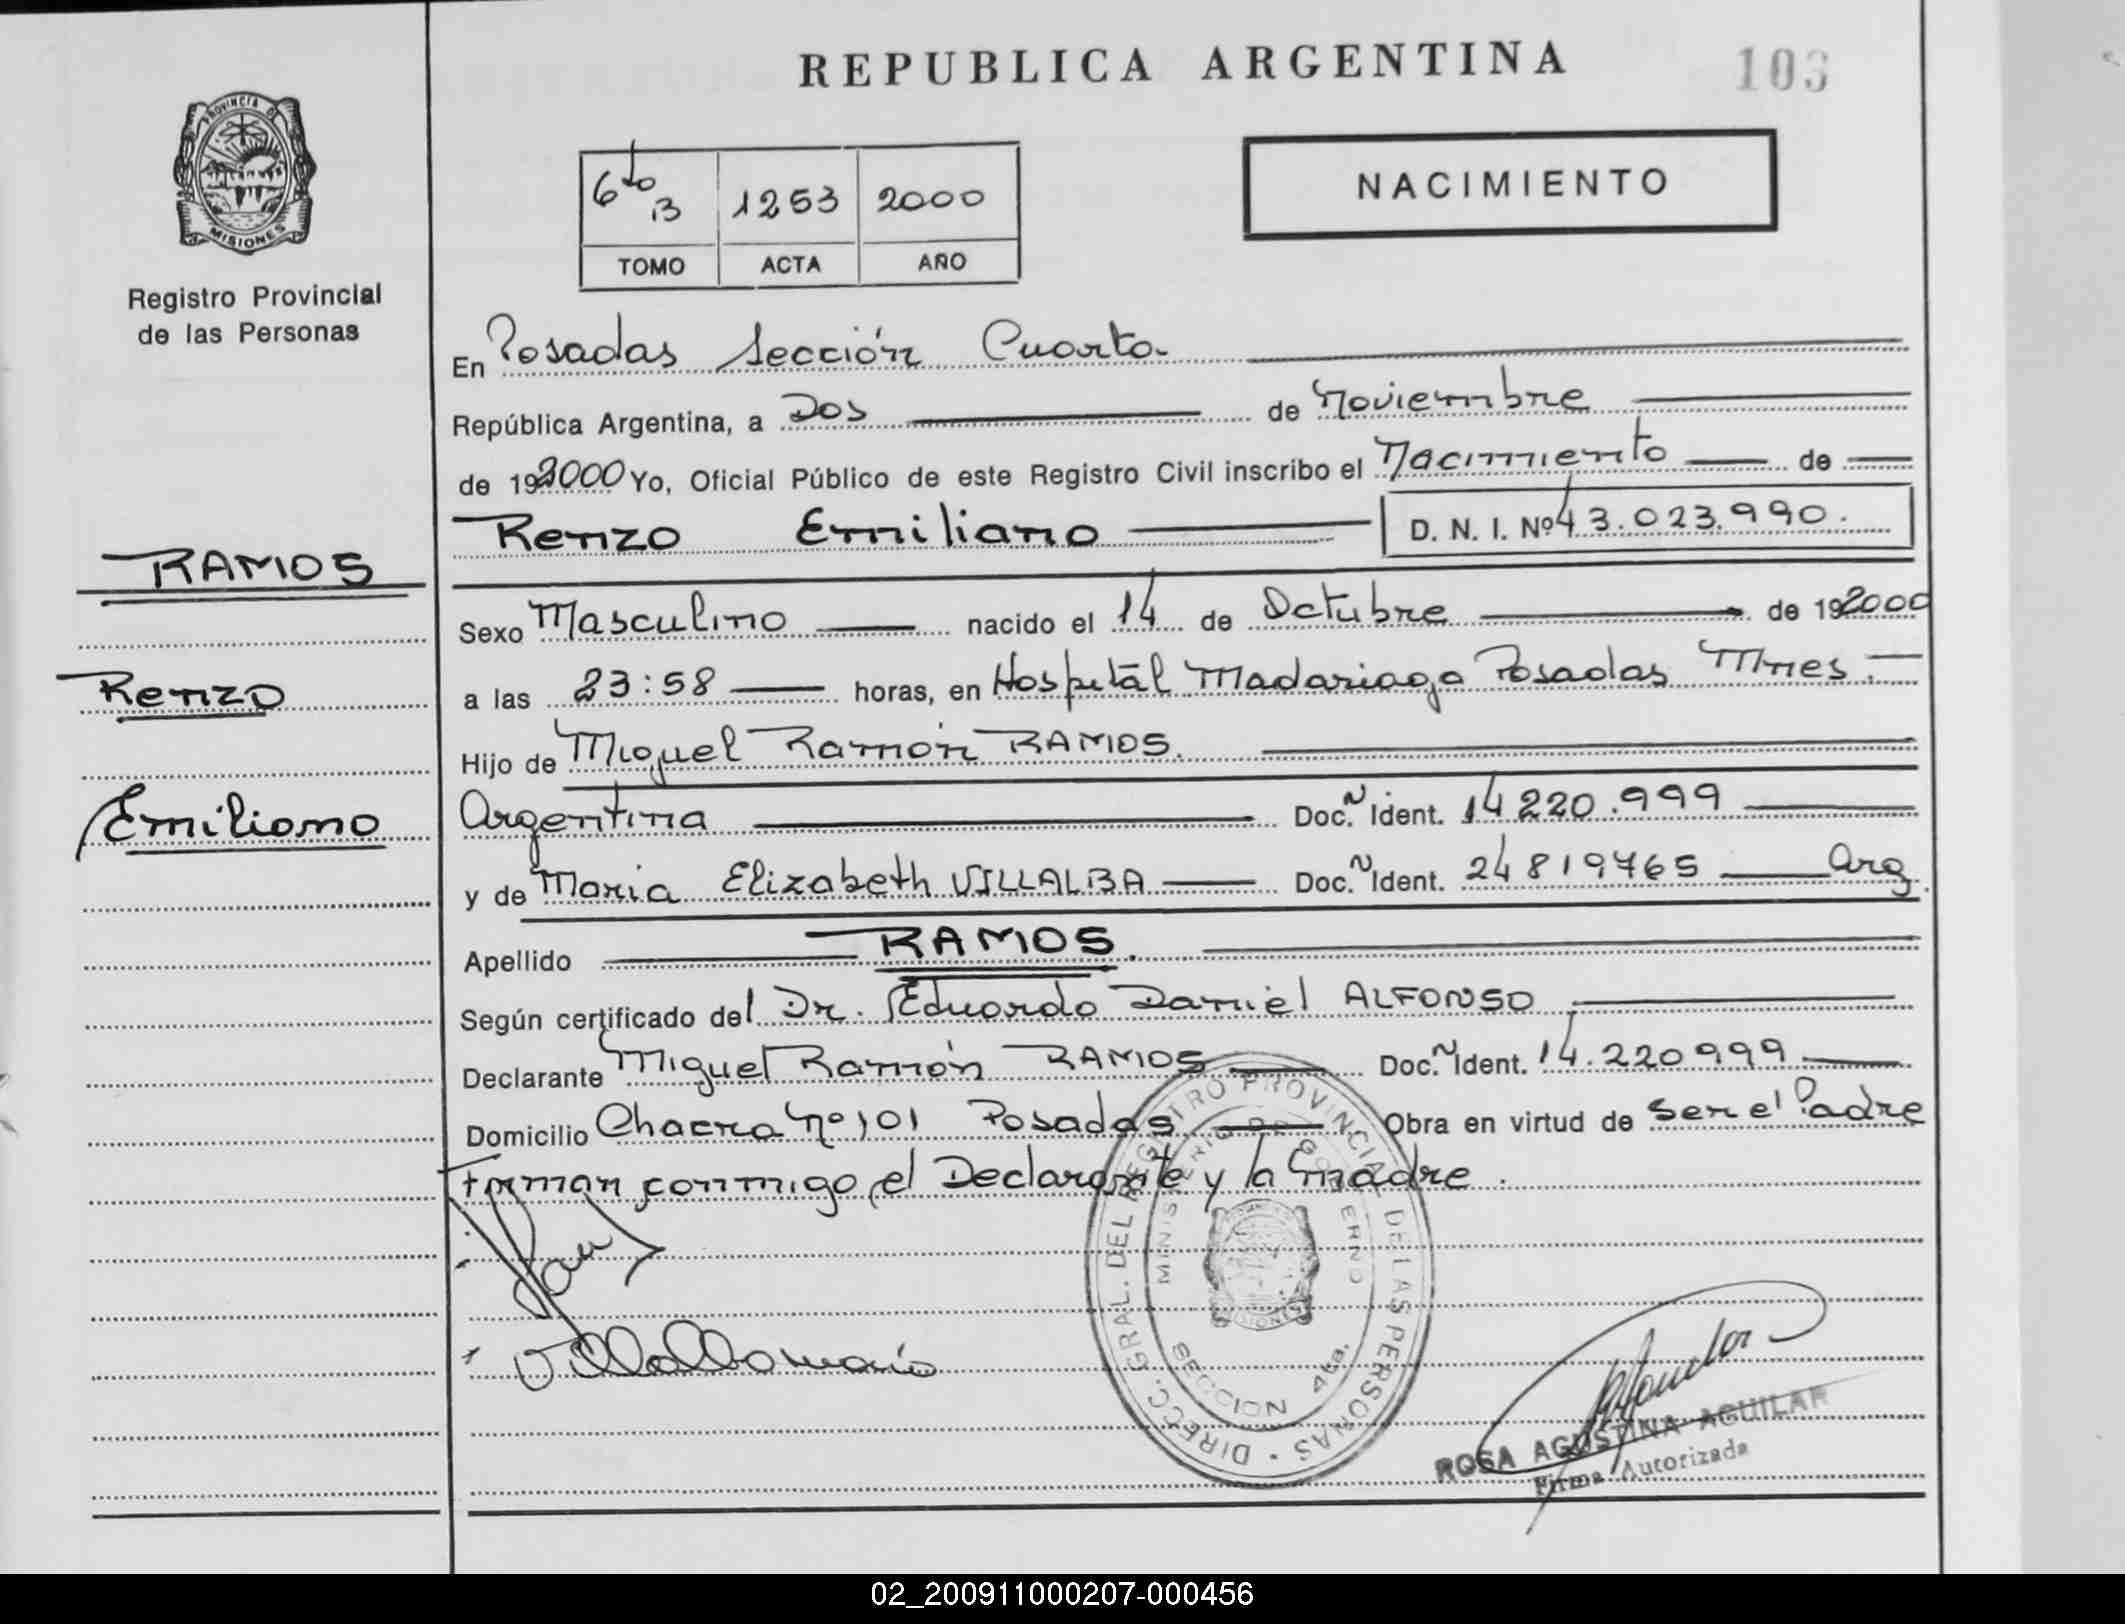 REPUBLICA ARGENTINA
103
PROVINCIA DE
MISIONES
Registro Provincial
de las Personas
6to B 1253 2000
TOMO ACTA AÑO
NACIMIENTO
En Posadas Sección Cuarta
República Argentina, a Dos de Noviembre
de 192000 Yo, Oficial Público de este Registro Civil inscribo el Nacimiento de
Renzo Emiliano D. N. I. Nº 43.023.990.
RAMOS
Renzo
Emiliano
Sexo Masculino nacido el 14 de Octubre de 192000
a las 23:58 horas, en Hospital Madariaga Posadas Mnes.
Hijo de Miguel Ramón RAMOS.
Argentina Doc. Ident. 14 220.999
y de Maria Elizabeth VILLALBA Doc. Ident. 24819765 Arg.
Apellido RAMOS.
Según certificado del Dr. Eduardo Daniel ALFONSO
Declarante Miguel Ramón RAMOS Doc. Ident. 14.220999
Domicilio Chacra Nº 101 Posadas Obra en virtud de Ser el Padre
Firman conmigo, el Declarante y la Madre.
DIRECC. GRAL. DEL REGISTRO PROVINCIAL DE LAS PERSONAS
MINISTERIO DE GOBIERNO
MISIONES
SECCION 4ta.
ROSA AGUSTINA AGUILAR
Firma Autorizada
02_200911000207-000456